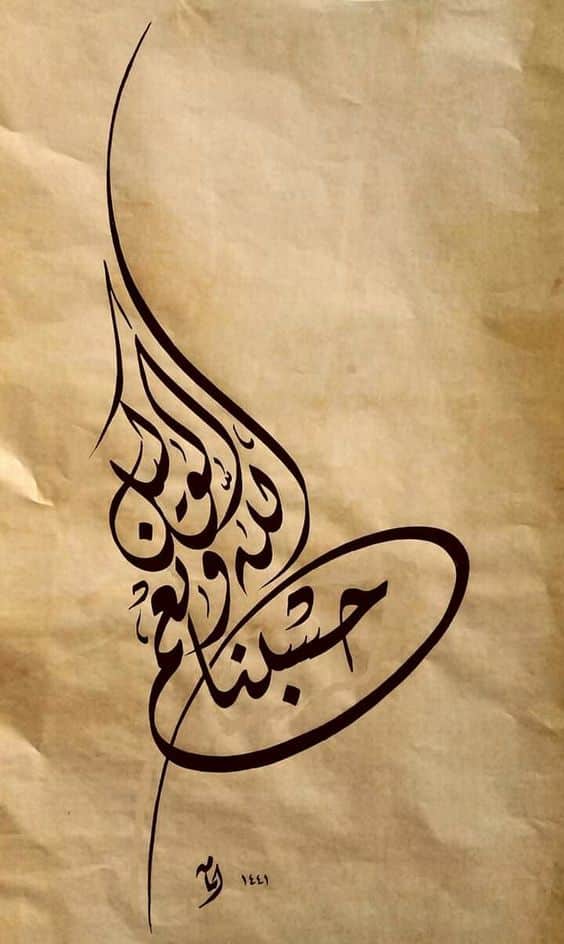 حسبنا
الله ونعم
الوكيل
١٤٤١